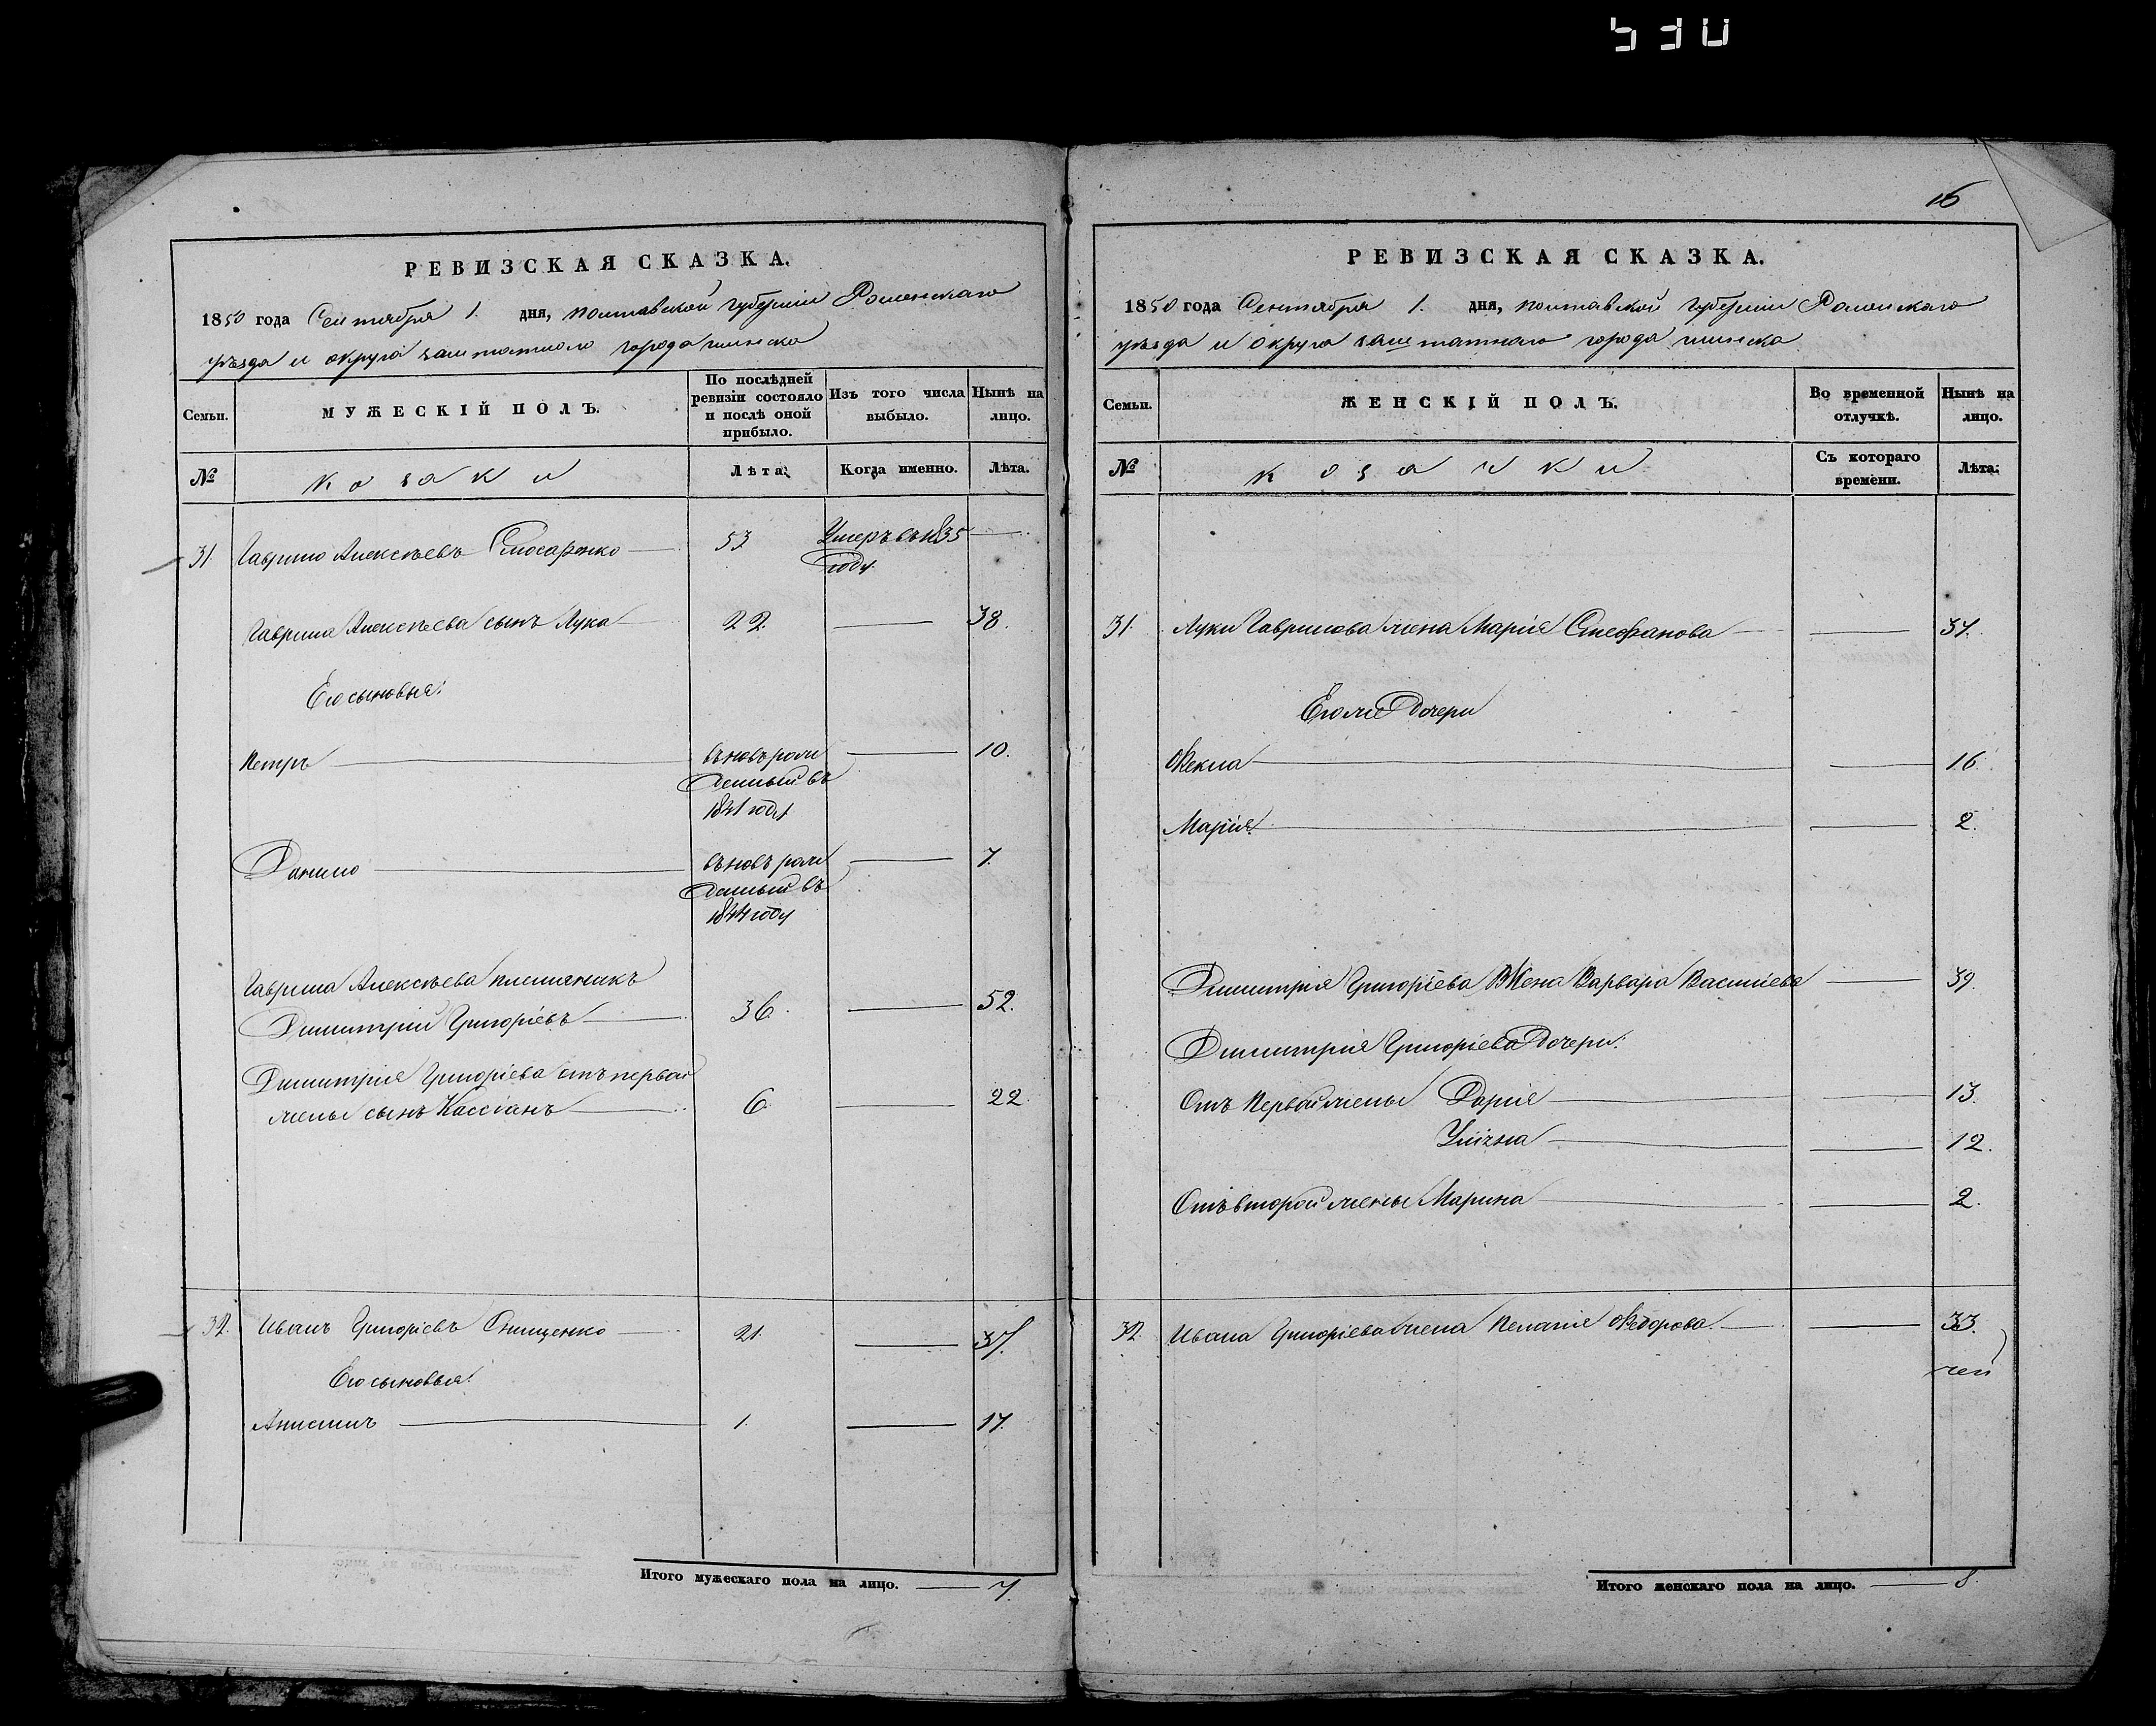 530
РЕВИЗСКАЯ СКАЗКА.
1850 года Сентября 1. дня, полтавской губерніи Роменскаго
уѣзда и округа заштатнаго города глинска
Семьи.
МУЖЕСКІЙ ПОЛЪ.
По послѣдней ревизіи состояло и послѣ оной прибыло.
Изъ того числа выбыло.
Нынѣ на лицо.
№
козаки
Лѣта.
Когда именно.
Лѣта.
31. Гаврило Алексѣевъ Слюсаренко 53 Умеръ въ 1835 году
Гаврила Алексѣева сынъ Лука 22 38.
Его сыновья:
Петръ вьновь рож 10.
денный въ
1841 году
Данило вьновь рож 7.
денный въ
1844 году
Гаврила Алексѣева племяникъ
Димитрій Григоріевъ 36. 52.
Димитрія Григоріева отъ первой
жены сынъ Кассіанъ 6 22.
32. Иванъ Григоріевъ Онищенко 21. 37.
Его сыновья:
Анисимъ 1. 17.
Итого мужескаго пола на лицо. 7.
16
РЕВИЗСКАЯ СКАЗКА.
1850 года Сентября 1. дня, полтавской губерніи Роменскаго
уѣзда и округа заштатнаго города глинска
Семьи.
ЖЕНСКІЙ ПОЛЪ.
Во временной отлучкѣ.
Нынѣ на лицо.
№
козачки
Съ котораго времени.
Лѣта.
31. Луки Гаврилова жена Марія Стефанова 37.
Его же Дочери
Ѳекла 16.
Марія 2.
Димитрія Григоріева Жена Варвара Василіева 39.
Димитрія Григоріева Дочери:
Отъ Первой жены Дарія 13.
Уліяна 12.
Отъ второй жены Марина 2.
32. Ивана Григоріева жена Пелагія Ѳедорова. 33.
Итого женскаго пола на лицо. 8.